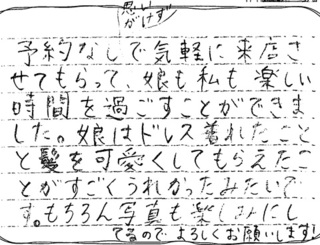 思いがけず
予約なしで気軽に来店さ
せてもらって、娘も私も楽しい
時間を過ごすことができま
した。娘はドレス着れたこと
と髪を可愛くしてもらえたこ
とがすごくうれかったみたいで
す。もちろん写真も楽しみにし
てるので よろしくお願いします!